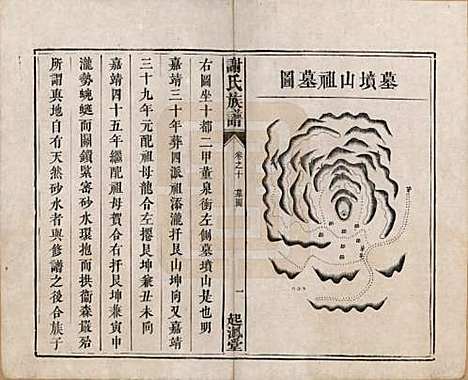 墓墳山祖墓圖
謝氏族譜
卷之十 墓圖
一
起鳳堂
右圖坐十都二甲董泉衝左側墓墳山是也明
嘉靖三十年葬四派祖添瀧扦艮山坤向又嘉靖
三十九年元配祖母龍合左攞艮坤兼丑未同
嘉靖四十五年繼配祖母賀合右扦艮坤兼寅申
瀧勢蜿蜒而關鎖緊密砂水環抱而拱衞森嚴殆
所謂輿地自有天然砂水者與修譜之後合族子